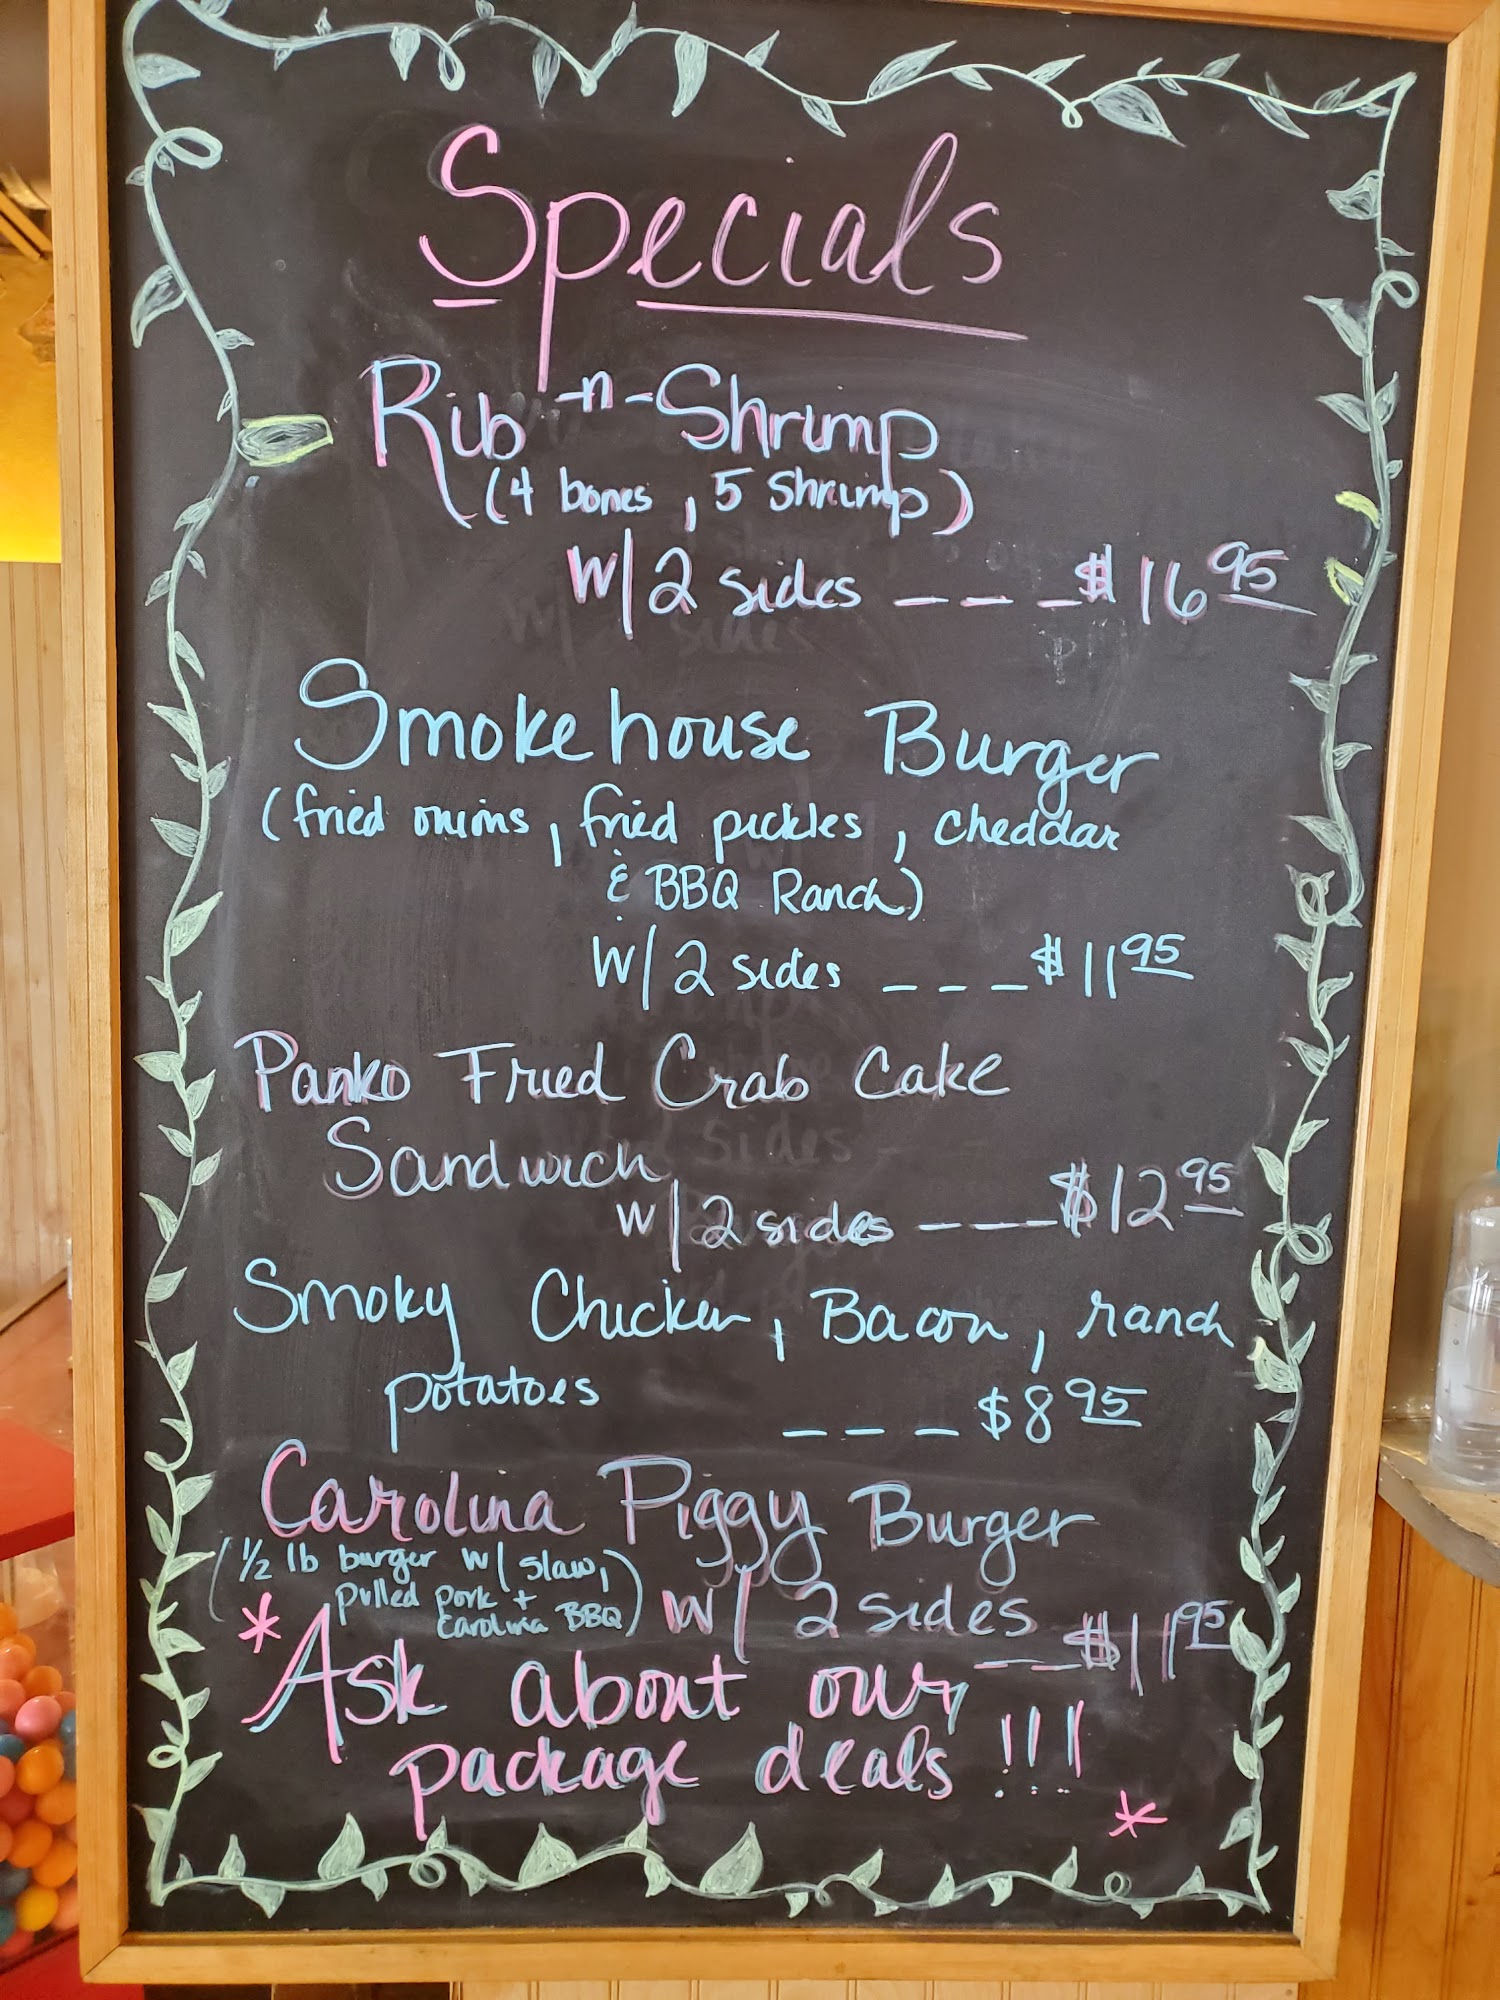 Specials
Rib -n- Shrimp
(4 bones, 5 Shrimp)
W/ 2 sides _ _ _ $16 95
Smokehouse Burger
(fried onions, fried pickles, cheddar
& BBQ Ranch)
W/ 2 sides _ _ _ $11 95
Panko Fried Crab Cake
Sandwich
w/ 2 sides _ _ _ $12 95
Smoky Chicken, Bacon, ranch
potatoes _ _ _ $8 95
Carolina Piggy Burger
(1/2 lb burger w/ slaw,
pulled pork +
Carolina BBQ) w/ 2 sides
_ _ $11 95
* Ask about our
package deals !!! *